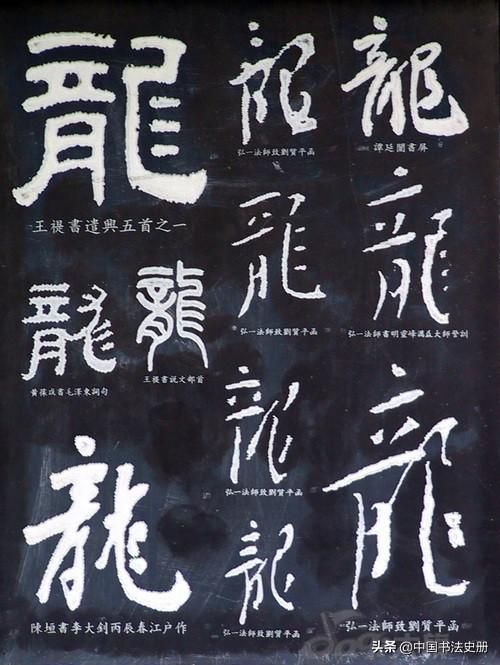 龍
王禔書遣興五首之一
龍
弘一法師致劉質平函
龍
譚延闓書屏
龍
弘一法師致劉質平函
龍
弘一法師書明靈峰澫益大師警訓
龍
黃葆戉書毛澤東詞句
龍
王禔書說文部首
龍
弘一法師致劉質平函
龍
弘一法師致劉質平函
龍
陳垣書李大釗丙辰春江戶作
龍
弘一法師致劉質平函
头条 @中国书法史册